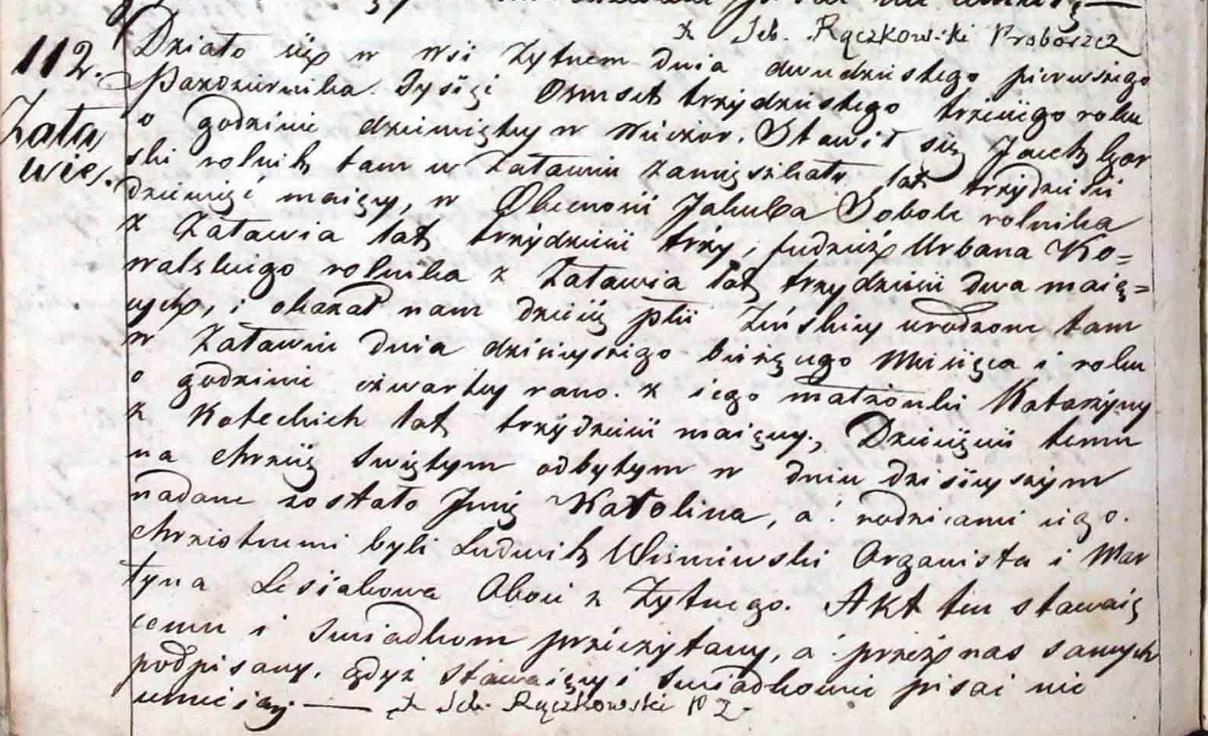 X Seb. Rączkowski Proboszcz
112. Działo się w Wsi Żytnem dnia dwudziestego pierwszego
Pazdziernika. Tysiąc Osmset trzydziestego trzeciego roku
Zata o godzinie dziewiątey w Wieczor. Stawił się Jacek Gor
wie. ski rolnik tam w Zatawiu zamięszkały lat trzydzieści
dziewięć maiący, w Obecnosci Jakuba Sobola rolnika
z Zatawia lat trzydzieści trzy, tudzież Urbana Ko=
walskiego rolnika z Zatawia lat trzydzieści dwa maią=
cych, i okazał nam dziecię płci Żeńskiey urodzone tam
w Zatawiu dnia dzisieyszego bieżącego Miesiąca i roku
o godzinie czwartey rano. z iego małżonki Katarzyny
z Koteckich lat trzydzieści maiącey, Dziecięciu temu
na chrzcie Swiętym odbytym w dniu dzisieyszym
nadane zostało Jmię Karolina, a rodzicami iego.
chrzestnemi byli Ludwik Wiśniewski Organista i Mar
tyna Lesiakowa Oboie z Żytnego. Akt ten stawaią
cemu i Swiadkom przeczytany, a przez nas samych
podpisany. gdyż stawaiący i Swiadkowie pisać nie
umieią. — X Seb. Rączkowski P Ż